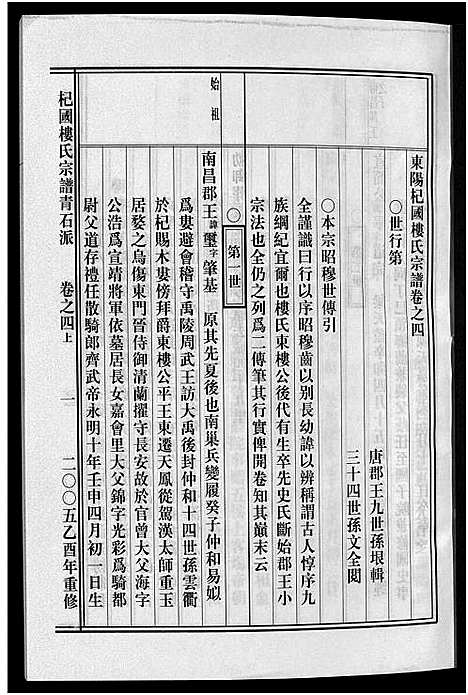 東陽杞國樓氏宗譜卷之四
○世行第
唐郡王九世孫垠輯
三十四世孫文全閱
○本宗昭穆世傳引
全謹識曰行以序昭穆齒以別長幼諱以辨稱謂古人惇序九
族綱紀宜爾也樓氏東樓公後代有生卒先史氏斷始郡王小
宗法也全仍之列爲二傳筆其行實俾開卷知其巔末云
第一世
始祖
南昌郡王諱璽字肇基 原其先夏後也南巢兵變履癸子仲和易姒
爲婁避會稽守禹陵周武王訪大禹後封仲和十四世孫雲衢
於杞賜木婁傍拜爵東樓公平王東遷天鳳從駕漢太師重玉
居婺之烏傷東門晉侍御清蘭擢守長安故於官曾大父海字
公浩爲宣靖將軍依墓居長女嘉會里大父錦字光彩爲騎都
尉父道存禮任散騎郎齊武帝永明十年壬申四月初一日生
杞國樓氏宗譜青石派 卷之四上 一 二〇〇五乙酉年重修